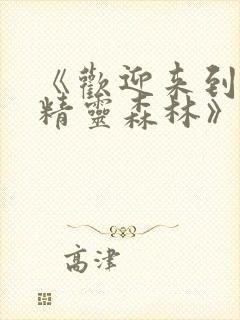 《歡迎来到
精靈森林》
高津